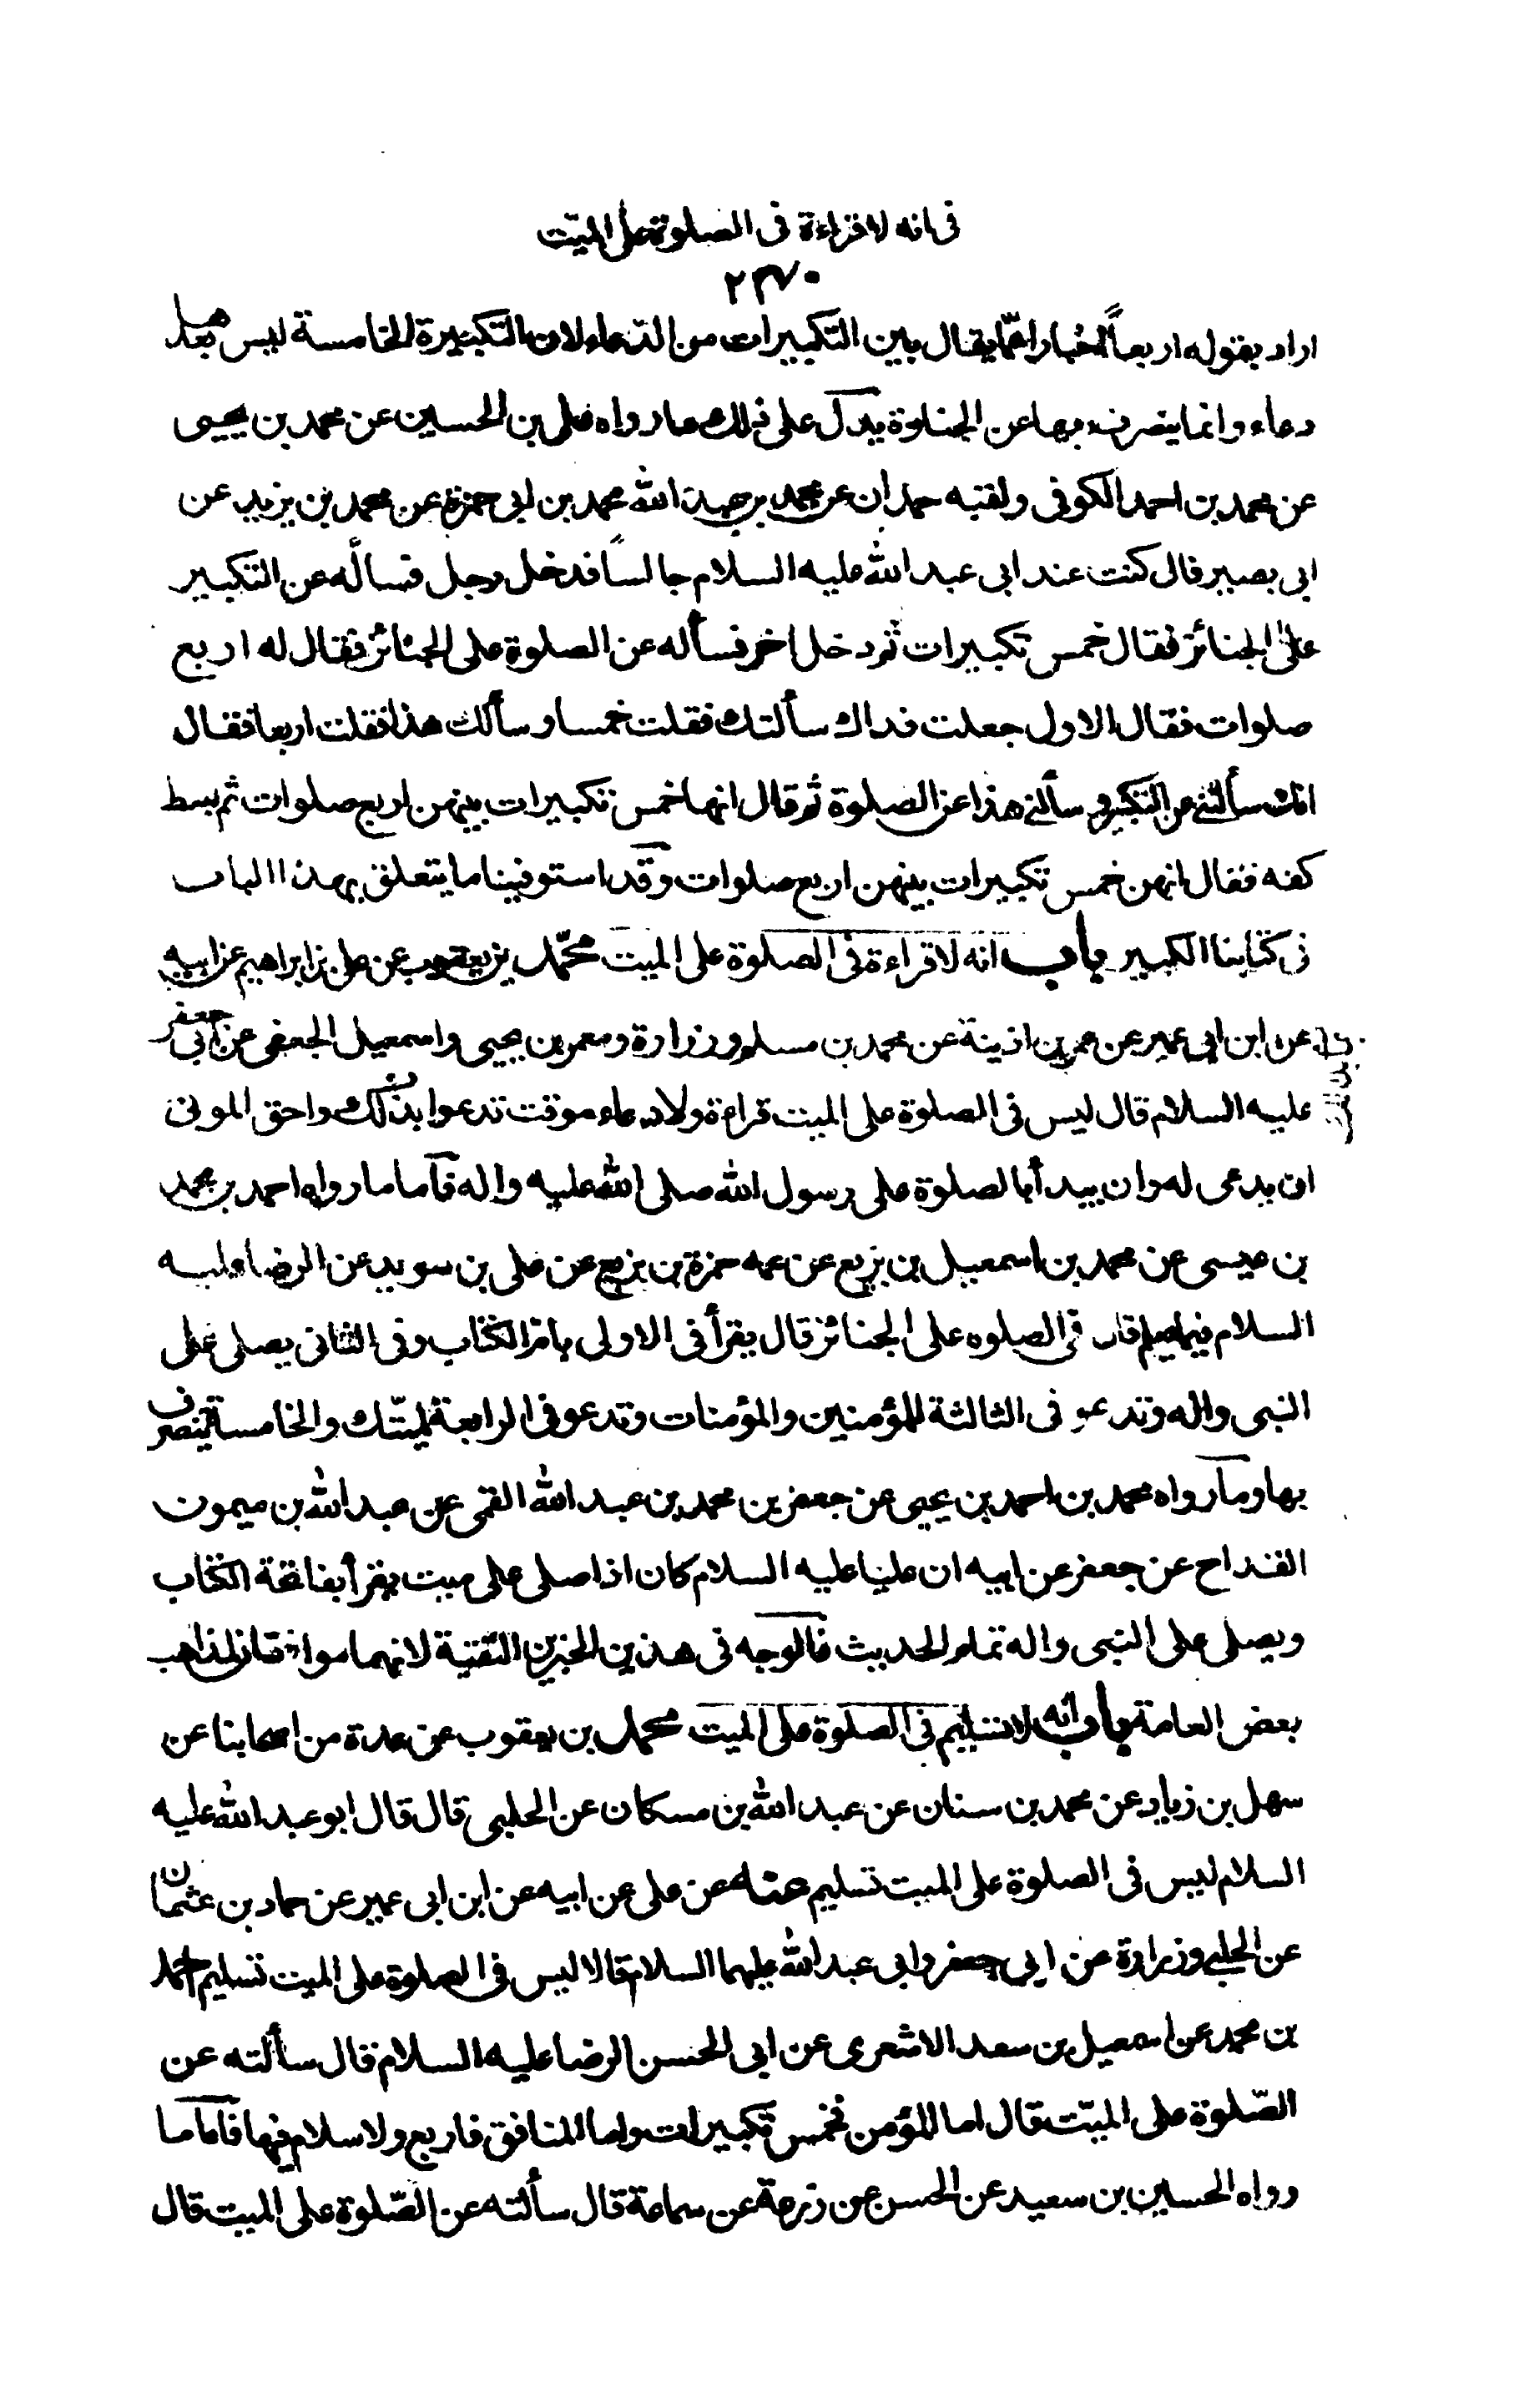 فى انه لا قراءة فى الصلوة على الميّت
٢٣٧٠
اراد بقوله اربعاً اخبارا عمّا يقال بين التكبيرات من الدعاء لان التكبيرة الخامسة ليس بعدها
دعاء وانما ينصرف بها عن الجنازة يدل على ذلك ما رواه على بن الحسين عن محمد بن يحيى
عن محمد بن احمد الكوفى ولقبه حمدان عن محمد بن عبد الله محمد بن ابى حمزة عن محمد بن يزيد عن
ابى بصير قال كنت عند ابى عبد الله عليه السلام جالساً فدخل رجل فسأله عن التكبير
على الجنائز فقال خمس تكبيرات ثم دخل اخر فسأله عن الصلوة على الجنائز فقال له اربع
صلوات فقال الاول جعلت فداك سألتك فقلت خمسا وسألك هذا فقلت اربعا فقال
انك سألتنى عن التكبير وسألنى هذا عن الصلوة ثم قال انها خمس تكبيرات بينهن اربع صلوات ثم بسط
كفه فقال انهن خمس تكبيرات بينهن اربع صلوات وقد استوفينا ما يتعلق بهذا الباب
فى كتابنا الكبير باب انه لا قراءة فى الصلوة على الميت محمّد بن يعقوب عن على بن ابراهيم عن ابيه
عن ابن ابى عمير عن عمر بن اذينة عن محمد بن مسلم وزرارة ومعمر بن يحيى واسمعيل الجعفى عن ابى جعفر
عليه السلام قال ليس فى الصلوة على الميت قراءة ولا دعاء موقت تدعوا بذلك واحق الموتى
ان يدعى له وان يبدأ بالصلوة على رسول الله صلى الله عليه واله فأما ما رواه احمد بن محمد
بن عيسى عن محمد بن اسمعيل بن بزيع عن عمه حمزة بن بزيع عن على بن سويد عن الرضا عليه
السلام فيما يعلم قال فى الصلوه على الجنائز قال يقرأ فى الاولى بام الكتاب وفى الثانى يصلى على
النبى واله وتدعو فى الثالثة للمؤمنين والمؤمنات وتدعو فى الرابعة لميّتك والخامسة ينصرف
بها وما رواه محمد بن احمد بن يحيى عن جعفر بن محمد بن عبد الله القمى عن عبد الله بن ميمون
القداح عن جعفر عن ابيه ان عليا عليه السلام كان اذا صلى على ميت يقرأ بفاتحة الكتاب
ويصلى على النبى واله تمام الحديث فالوجه فى هذين الخبرين التقية لانهما موافقان لمذاهب
بعض العامة باب انه لا تسليم فى الصلوة على الميت محمد بن يعقوب عن عدة من اصحابنا عن
سهل بن زياد عن محمد بن سنان عن عبد الله بن مسكان عن الحلبى قال قال ابو عبد الله عليه
السلام ليس فى الصلوة على الميت تسليم عنه عن على عن ابيه عن ابن ابى عمير عن حماد بن عثمان
عن الحلبى وزرارة عن ابى جعفر وابى عبد الله عليهما السلام قالا ليس فى الصلوة على الميت تسليم احمد
بن محمد عن اسمعيل بن سعد الاشعرى عن ابى الحسن الرضا عليه السلام قال سألته عن
الصّلوة على الميّت قال اما المؤمن فخمس تكبيرات واما المنافق فاربع ولا سلام فيها فأما ما
رواه الحسين بن سعيد عن الحسن عن زرعة عن سماعة قال سألته عن الصّلوة على الميت قال